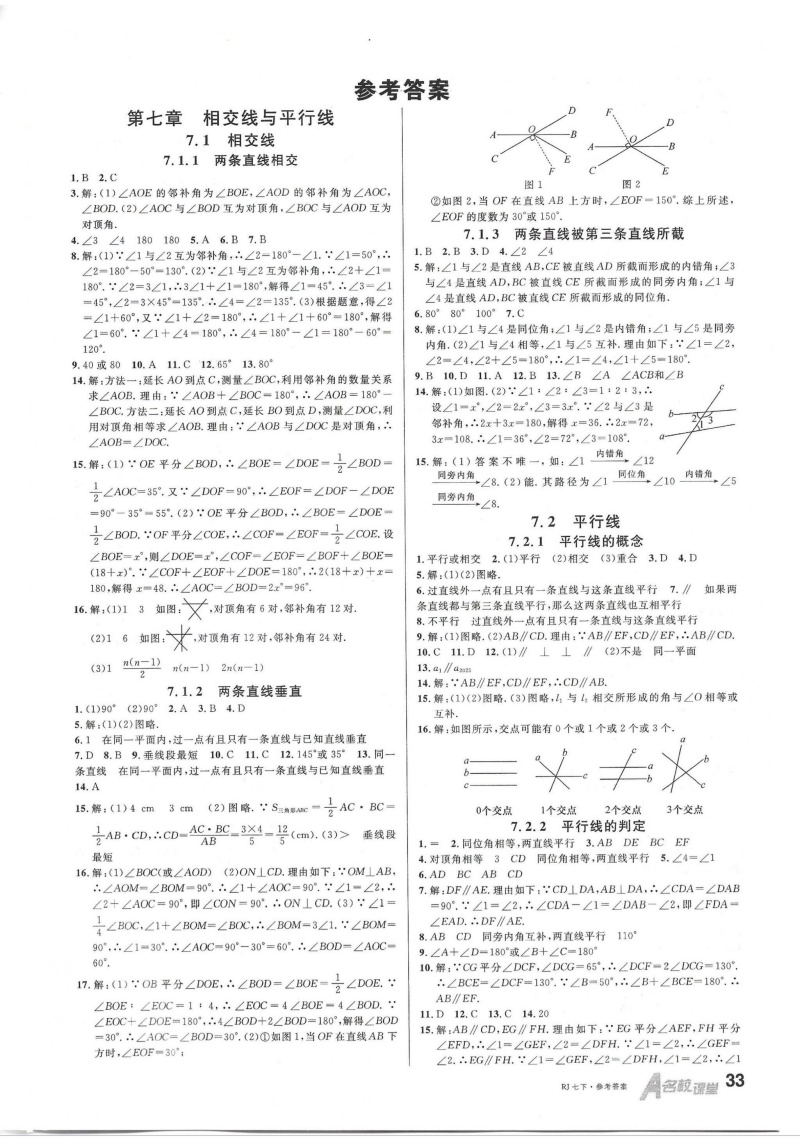 参考答案
第七章 相交线与平行线
7.1 相交线
7.1.1 两条直线相交
1.B 2.C
3.解:(1)∠AOE的邻补角为∠BOE,∠AOD的邻补角为∠AOC,
∠BOD.(2)∠AOC与∠BOD互为对顶角,∠BOC与∠AOD互为
对顶角.
4.∠3 ∠4 180 180 5.A 6.B 7.B
8.解:(1)∵∠1与∠2互为邻补角,∴∠2=180°-∠1.∵∠1=50°,∴
∠2=180°-50°=130°.(2)∵∠1与∠2互为邻补角,∴∠2+∠1=
180°.∵∠2=3∠1,∴3∠1+∠1=180°,解得∠1=45°.∴∠3=∠1
=45°,∠2=3×45°=135°.∴∠4=∠2=135°.(3)根据题意,得∠2
=∠1+60°,又∵∠1+∠2=180°,∴∠1+∠1+60°=180°,解得
∠1=60°.∵∠1+∠4=180°,∴∠4=180°-∠1=180°-60°=
120°.
9.40或80 10.A 11.C 12.65° 13.80°
14.解:方法一:延长AO到点C,测量∠BOC,利用邻补角的数量关系
求∠AOB.理由:∵∠AOB+∠BOC=180°,∴∠AOB=180°-
∠BOC.方法二:延长AO到点C,延长BO到点D,测量∠DOC,利
用对顶角相等求∠AOB.理由:∵∠AOB与∠DOC是对顶角,∴
∠AOB=∠DOC.
15.解:(1)∵OE平分∠BOD,∴∠BOE=∠DOE=1/2∠BOD=
1/2∠AOC=35°.又∵∠DOF=90°,∴∠EOF=∠DOF-∠DOE
=90°-35°=55°.(2)∵OE平分∠BOD,∴∠BOE=∠DOE=
1/2∠BOD.∵OF平分∠COE,∴∠COF=∠EOF=1/2∠COE.设
∠BOE=x°,则∠DOE=x°,∠COF=∠EOF=∠BOF+∠BOE=
(18+x)°.∵∠COF+∠EOF+∠DOE=180°,∴2(18+x)+x=
180,解得x=48.∴∠AOC=∠BOD=2x°=96°.
16.解:(1)1 3 如图:,对顶角有6对,邻补角有12对.
(2)1 6 如图:,对顶角有12对,邻补角有24对.
(3)1 n(n-1)/2 n(n-1) 2n(n-1)
7.1.2 两条直线垂直
1.(1)90° (2)90° 2.A 3.B 4.D
5.解:(1)(2)图略.
6.1 在同一平面内,过一点有且只有一条直线与已知直线垂直
7.D 8.B 9.垂线段最短 10.C 11.C 12.145°或35° 13.同一
条直线 在同一平面内,过一点有且只有一条直线与已知直线垂直
14.A
15.解:(1)4 cm 3 cm (2)图略.∵S三角形ABC=1/2AC·BC=
1/2AB·CD,∴CD=AC·BC/AB=3×4/5=12/5(cm).(3)> 垂线段
最短
16.解:(1)∠BOC(或∠AOD) (2)ON⊥CD.理由如下:∵OM⊥AB,
∴∠AOM=∠BOM=90°.∴∠1+∠AOC=90°.∵∠1=∠2,∴
∠2+∠AOC=90°,即∠CON=90°.∴ON⊥CD.(3)∵∠1=
1/4∠BOC,∠1+∠BOM=∠BOC,∴∠BOM=3∠1.∵∠BOM=
90°,∴∠1=30°.∴∠AOC=90°-30°=60°.∴∠BOD=∠AOC=
60°.
17.解:(1)∵OB平分∠DOE,∴∠BOD=∠BOE=1/2∠DOE.∵
∠BOE:∠EOC=1:4,∴∠EOC=4∠BOE=4∠BOD.∵
∠EOC+∠DOE=180°,∴4∠BOD+2∠BOD=180°,解得∠BOD
=30°.∴∠AOC=∠BOD=30°.(2)①如图1,当OF在直线AB下
方时,∠EOF=30°;
D
A O B
C F E
图1
F D
A O B
C E
图2
②如图2,当OF在直线AB上方时,∠EOF=150°.综上所述,
∠EOF的度数为30°或150°.
7.1.3 两条直线被第三条直线所截
1.B 2.B 3.D 4.∠2 ∠4
5.解:∠1与∠2是直线AB,CE被直线AD所截而形成的内错角;∠3
与∠4是直线AD,BC被直线CE所截而形成的同旁内角;∠1与
∠4是直线AD,BC被直线CE所截而形成的同位角.
6.80° 80° 100° 7.C
8.解:(1)∠1与∠4是同位角;∠1与∠2是内错角;∠1与∠5是同旁
内角.(2)∠1与∠4相等,∠1与∠5互补.理由如下:∵∠1=∠2,
∠2=∠4,∠2+∠5=180°,∴∠1=∠4,∠1+∠5=180°.
9.B 10.D 11.A 12.B 13.∠B ∠A ∠ACB和∠B
14.解:(1)如图.(2)∵∠1:∠2:∠3=1:2:3,∴
设∠1=x°,∠2=2x°,∠3=3x°.∵∠2与∠3是
邻补角,∴2x+3x=180,解得x=36.∴2x=72,
3x=108.∴∠1=36°,∠2=72°,∠3=108°.
c
b
2 3
1
a
15.解:(1)答案不唯一,如:∠1 内错角→ ∠12
同旁内角→ ∠8.(2)能.其路径为∠1 同位角→ ∠10 内错角→ ∠5
同旁内角→ ∠8.
7.2 平行线
7.2.1 平行线的概念
1.平行或相交 2.(1)平行 (2)相交 (3)重合 3.D 4.D
5.解:(1)(2)图略.
6.过直线外一点有且只有一条直线与这条直线平行 7.∥ 如果两
条直线都与第三条直线平行,那么这两条直线也互相平行
8.不平行 过直线外一点有且只有一条直线与这条直线平行
9.解:(1)图略.(2)AB∥CD.理由:∵AB∥EF,CD∥EF,∴AB∥CD.
10.C 11.D 12.(1)∥ ⊥ ⊥ ∥ (2)不是 同一平面
13.a₁∥a₂₀₂₅
14.解:∵AB∥EF,CD∥EF,∴CD∥AB.
15.解:(1)(2)图略.(3)图略,l₁与l₂相交所形成的角与∠O相等或
互补.
16.解:如图所示,交点可能有0个或1个或2个或3个.
a
b
c
0个交点
a b c
1个交点
a b c
2个交点
a b c
3个交点
7.2.2 平行线的判定
1.= 2.同位角相等,两直线平行 3.AB DE
4.对顶角相等 3 CD 同位角相等,两直线平行 5.∠4=∠1
6.AD BC AB CD
7.解:DF∥AE.理由如下:∵CD⊥DA,AB⊥DA,∴∠CDA=∠DAB
=90°.∵∠1=∠2,∴∠CDA-∠1=∠DAB-∠2,即∠FDA=
∠EAD.∴DF∥AE.
8.AB CD 同旁内角互补,两直线平行 110°
9.∠A+∠D=180°或∠B+∠C=180°
10.解:∵CG平分∠DCF,∠DCG=65°,∴∠DCF=2∠DCG=130°.
∴∠BCE=∠DCF=130°.∵∠B=50°,∴∠B+∠BCE=180°.∴
AB∥EF.
11.D 12.C 13.C 14.20
15.解:AB∥CD,EG∥FH.理由如下:∵EG平分∠AEF,FH平分
∠EFD,∴∠1=∠GEF,∠2=∠DFH.∵∠1=∠2,∴∠GEF=
∠2.∴EG∥FH.∵∠1=∠GEF,∠2=∠DFH,∠1=∠2,∴∠1
RJ 七下·参考答案
A名校课堂
33